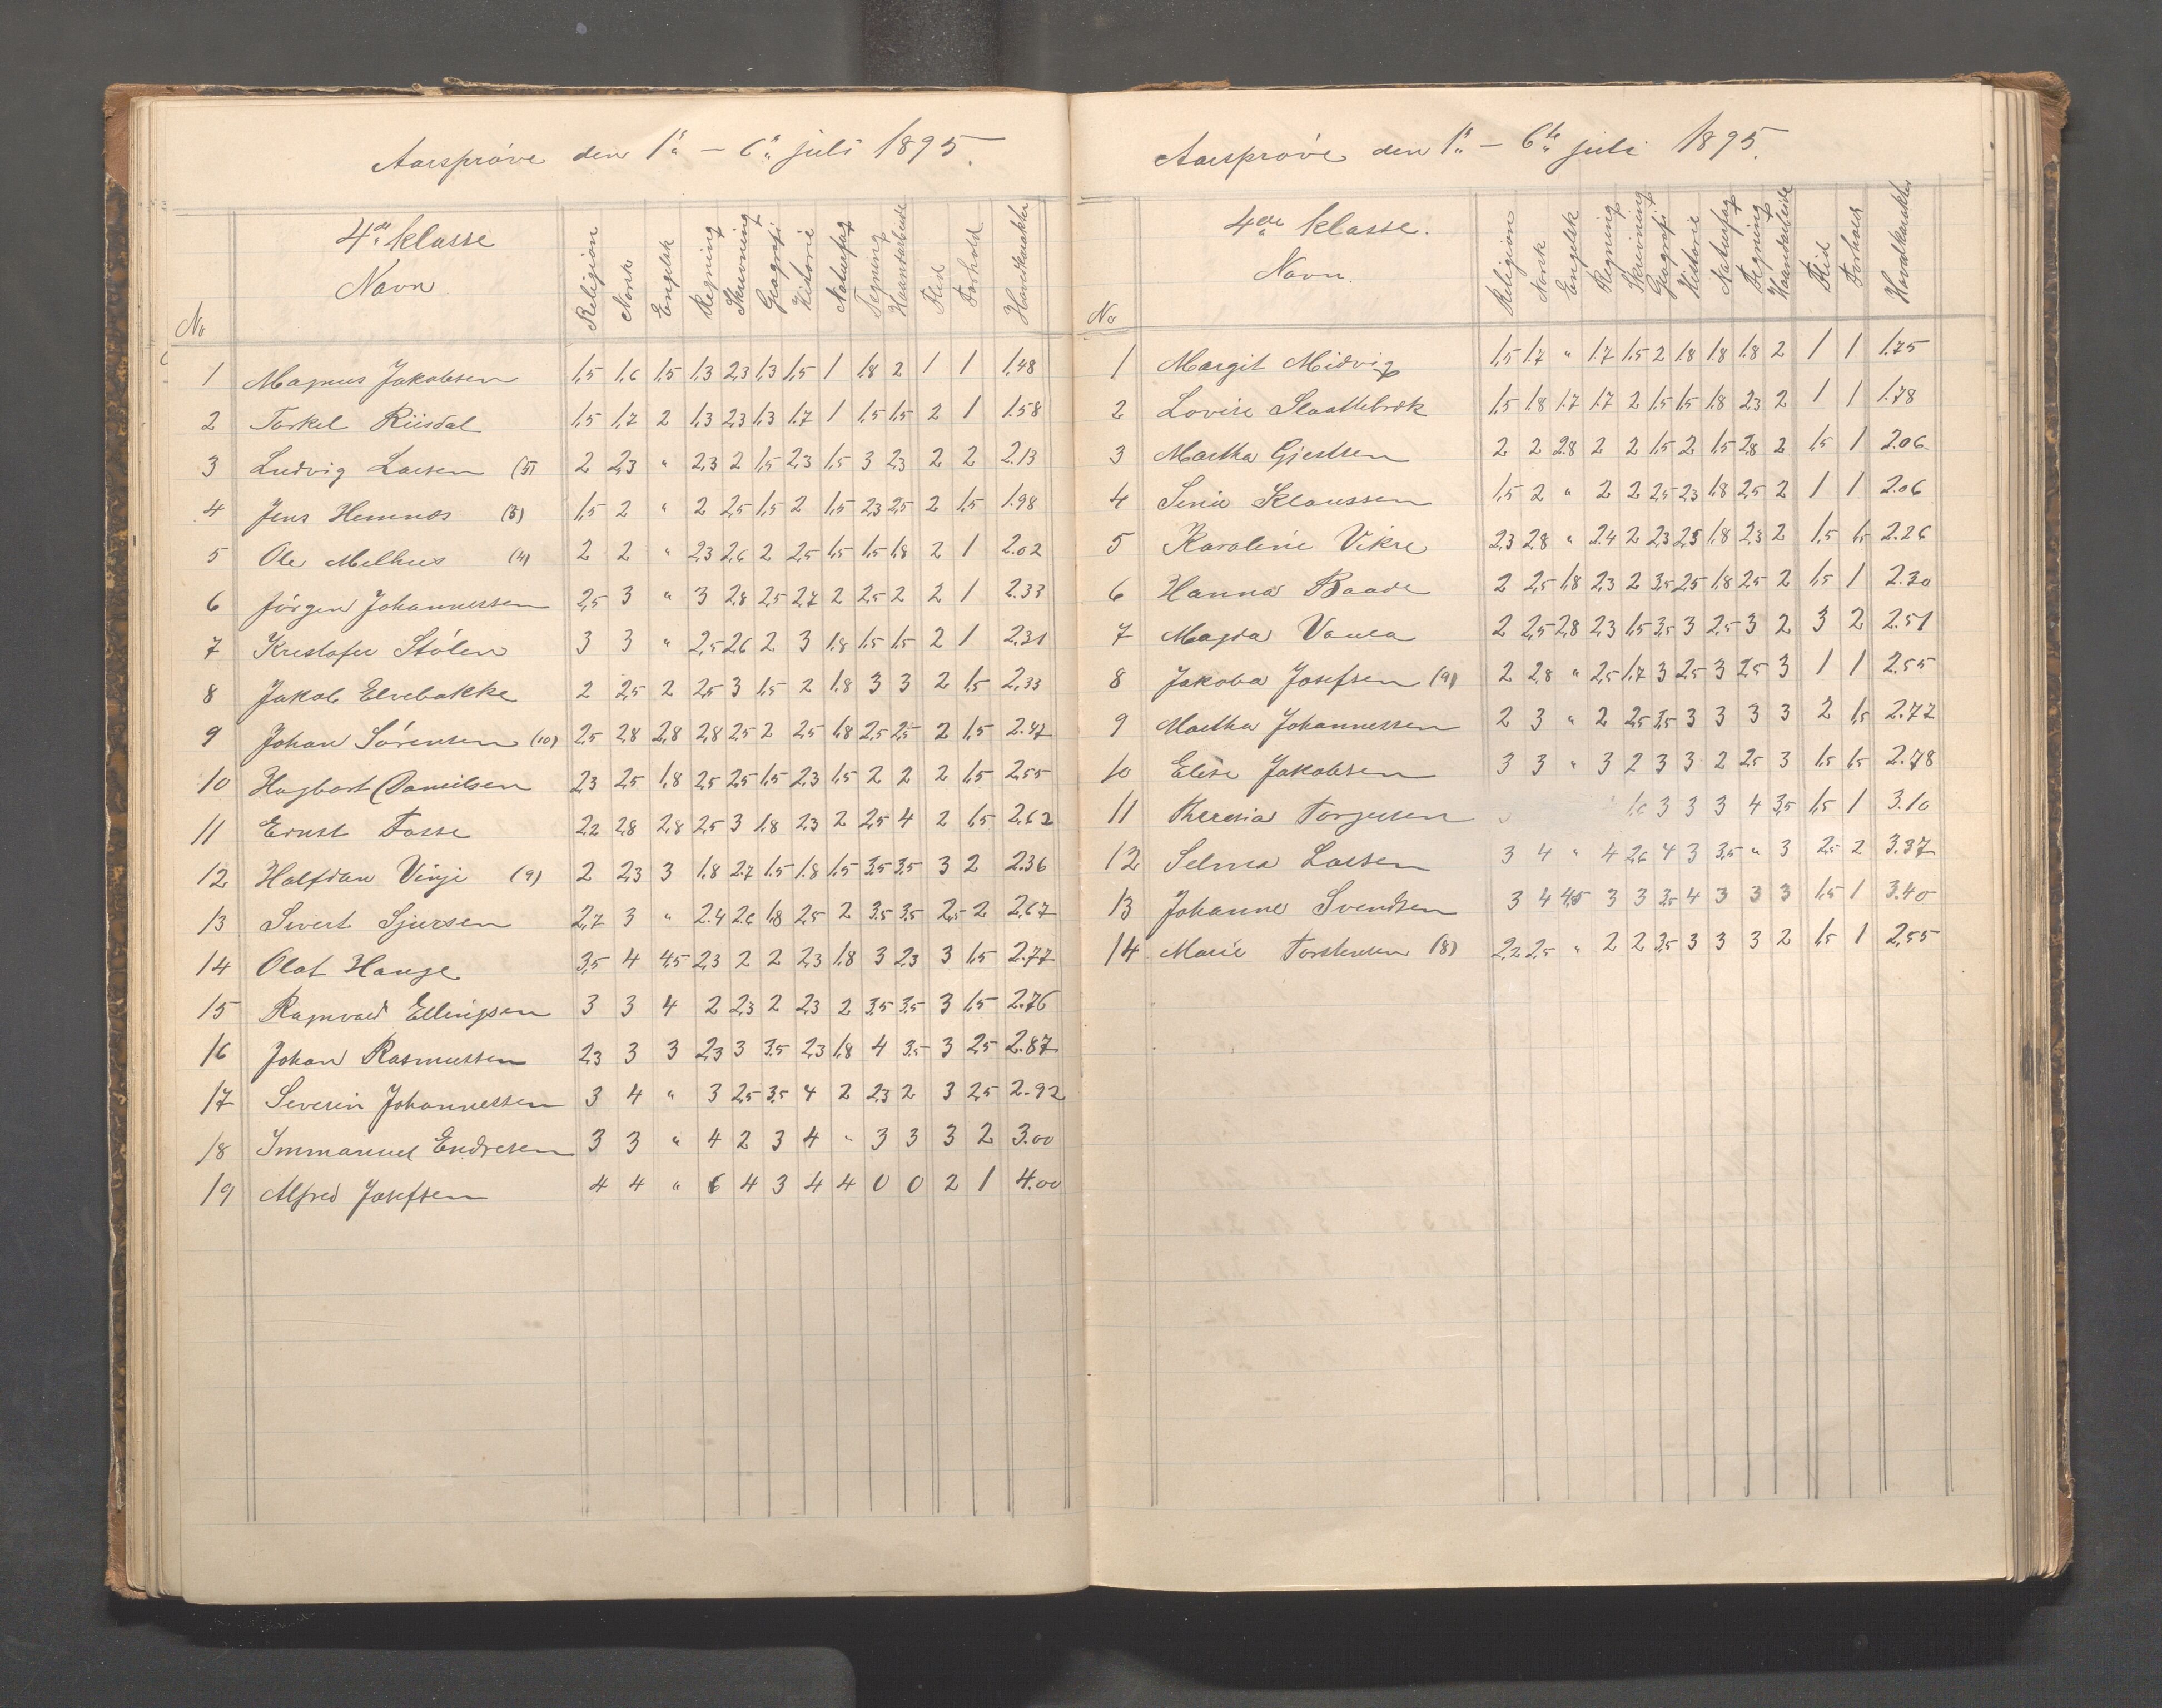 Aarsprøve den 1ste – 6te juli 1895.
4de klasse
Navn
No Religion Norsk Engelsk Regning Skrivning Geografi Historie Naturfag Tegning Haandarbeide Flid Forhold Hovedkarakter
1 Magnus Jakobsen 1,5 1,6 1,5 1,3 2,3 1,3 1,5 1 1,8 2 1 1 1.48
2 Torkel Riisdal 1,5 1,7 2 1,3 2,3 1,3 1,7 1 1,5 1,5 2 1 1.58
3 Ludvig Larsen (5) 2 2,3 " 2,3 2 1,5 2,3 1,5 3 2,3 2 2 2.13
4 Jens Hemnæs (5) 1,5 2 " 2 2,5 1,5 2 1,5 2,3 2,5 2 1,5 1.98
5 Ole Melhus (4) 2 2 " 2,3 2,6 2 2,5 1,5 1,5 1,8 2 1 2.02
6 Jørgen Johannessen 2,5 3 " 3 2,8 2,5 2,7 2 2,5 2 2 1 2.33
7 Kristofer Stølen 3 3 " 2,5 2,6 2 3 1,8 1,5 1,5 2 1 2.31
8 Jakob Elvebakke 2 2,5 2 2,5 3 1,5 2 1,8 3 3 2 1,5 2.33
9 Johan Sørensen (10) 2,5 2,8 2,8 2,8 2,5 2 2,5 1,8 2,5 2,5 2 1,5 2.47
10 Hagbart Danielsen 2,3 2,5 1,8 2,5 2,5 1,5 2,3 1,5 2 2 2 1,5 2.55
11 Ernst Fosse 2,2 2,8 2,8 2,5 3 1,8 2,3 2 2,5 4 2 1,5 2.62
12 Halfdan Vinje (9) 2 2,3 3 1.8 2.7 1.5 1.8 1.5 3,5 3,5 3 2 2.36
13 Sivert Sjursen 2,7 3 " 2.4 2,6 1,8 2,5 2 3,5 3,5 2,5 2 2.67
14 Olaf Hauge 3,5 4 4,5 2,3 2 2 2,3 1,8 3 2,3 3 1,5 2.77
15 Ragnvald Ellingsen 3 3 4 2 2,3 2 2,3 2 3,5 3,5 3 1,5 2.76
16 Johan Rasmussen 2,3 3 3 2,3 3 3,5 2,3 1,8 4 3,5 3 2,5 2.87
17 Severin Johannessen 3 4 " 3 2,5 3,5 4 2 2,3 2 3 2,5 2.92
18 Immanuel Endresen 3 3 " 4 2 3 4 " 3 3 3 2 3.00
19 Alfred Josefsen 4 4 " 6 4 3 4 4 0 0 2 1 4.00
Aarsprøve den 1ste – 6te juli 1895.
4de klasse.
Navn.
No Religion Norsk Engelsk Regning Skrivning Geografi Historie Naturfag Tegning Haandarbeide Flid Forhold Hovedkarakter
1 Margit Midvig 1,5 1.7 " 1.7 1,5 2 1.8 1,8 1.8 2 1 1 1.75
2 Lovise Slaattebræk 1,5 1.8 1.7 1.7 2 1,5 1,5 1.8 2,3 2 1 1 1.78
3 Martha Gjertsen 2 2 2.8 2 2 1,5 2 1,5 2,8 2 1,5 1 2.06
4 Sina Klaussen 1,5 2 " 2 2 2,5 2,3 1,8 2,5 2 1 1 2.06
5 Karoline Vikre 2,3 2,8 " 2.4 2 2,3 2,5 1,8 2,3 2 1,5 1,5 2.26
6 Hanna Baade 2 2,5 1,8 2,3 2 3,5 2,5 1,8 2,5 2 1,5 1 2.30
7 Magda Vaula 2 2,5 2,8 2,3 1,5 3,5 3 2,5 3 2 3 2 2.51
8 Jakoba Josefsen (9) 2 2,8 " 2,5 1,7 3 2,5 3 2,5 3 1 1 2.55
9 Martha Johannessen 2 3 " 2 2,5 3,5 3 3 3 3 2 1,5 2.77
10 Elise Jakobsen 3 3 " 3 2 3 3 2 2,5 3 1,5 1,5 2.78
11 Theresia Torgersen 1,6 3 3 3 4 3,5 1,5 1 3.10
12 Selma Larsen 3 4 " 4 2,6 4 3 3,5 " 3 2,5 2 3.37
13 Johanne Svendsen 3 4 4,5 3 3 3,5 4 3 3 3 1,5 1 3.40
14 Marie Torstensen (8) 2,2 2,5 " 2 2 3,5 3 3 3 2 1,5 1 2.55